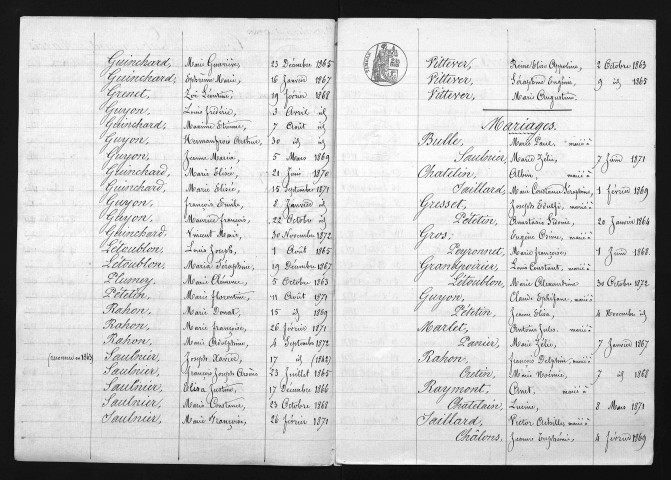 Guinchard, Marie Geneviève, 23 Décembre 1865
Guinchard, Ephrème Marie, 16 Janvier 1867
Grenet, Zoé Léontine, 19 février 1868
Guyon, Louis frédéric, 3 Avril id
Guinchard, Maxime Etienne, 7 Août id
Guyon, Hermanfrois Arthur, 30 id id
Guyon, Jeanne Maria, 5 Mars 1869
Guinchard, Marie Elisée, 21 Juin 1870
Guinchard, Marie Elisée, 15 Septembre 1871
Guyon, françois Emile, 8 Janvier id
Guyon, Maurice françois, 22 Octobre id
Guinchard, Vincent Marie, 30 Novembre 1872
Létoublon, Louis Joseph, 1 Août 1865
Létoublon, Maria Séraphine, 19 Décembre 1867
Plumey, Marie Clémence, 5 Octobre 1863
Pételin, Marie florentine, 11 Août 1871
Rahon, Marie Donat, 15 id 1869
Rahon, Marie françoise, 26 février 1871
Rahon, Marie Adolphine, 4 Septembre 1872
Saulnier, Joseph Xavier, 17 id (1862)
Saulnier, François Joseph Arsène, 23 Juillet 1865
Saulnier, Elisa Justine, 17 Décembre 1866
Saulnier, Marie Constance, 23 Octobre 1868
Saulnier, Marie Françoise, 26 février 1871
Vittever, Reine Elisa Appoline, 2 Octobre 1863
Vittever, Séraphine Eugénie, 9 id 1865
Vittever, Marie Augustine,
Mariages.
Bulle, Marie Paul, marié à
Saulnier, Marie Zélie, 7 Juin 1871
Chatelin, Albin, marié à
Jaillard, Marie Constance Séraphine, 1 février 1869
Grisset, Joseph marié à
Pételin, Anastasie 20 Janvier 1864
Gros, Eugène marié à
Peyronnet, Marie françoise, 1 Juin 1868
Grandpoirier, Louis Constant, marié à
Létoublon, Marie Clémentine 30 Octobre 1872
Guyon, Claude marié à
Pételin, Jeanne Elisa, 4 Novembre id
Marlet, Antoine Jules, marié à
Panier, Marie Zélie, 7 Janvier 1867
Rahon, françois Delphin, marié à
Cretin, Marie Noémie, 7 id 1868
Raymont, Ernest, marié à
Chatelain, Lucine, 8 Mars 1871
Jaillard, Victor Achille, marié à
Châlons, Jeanne Euphémie, 4 février 1869